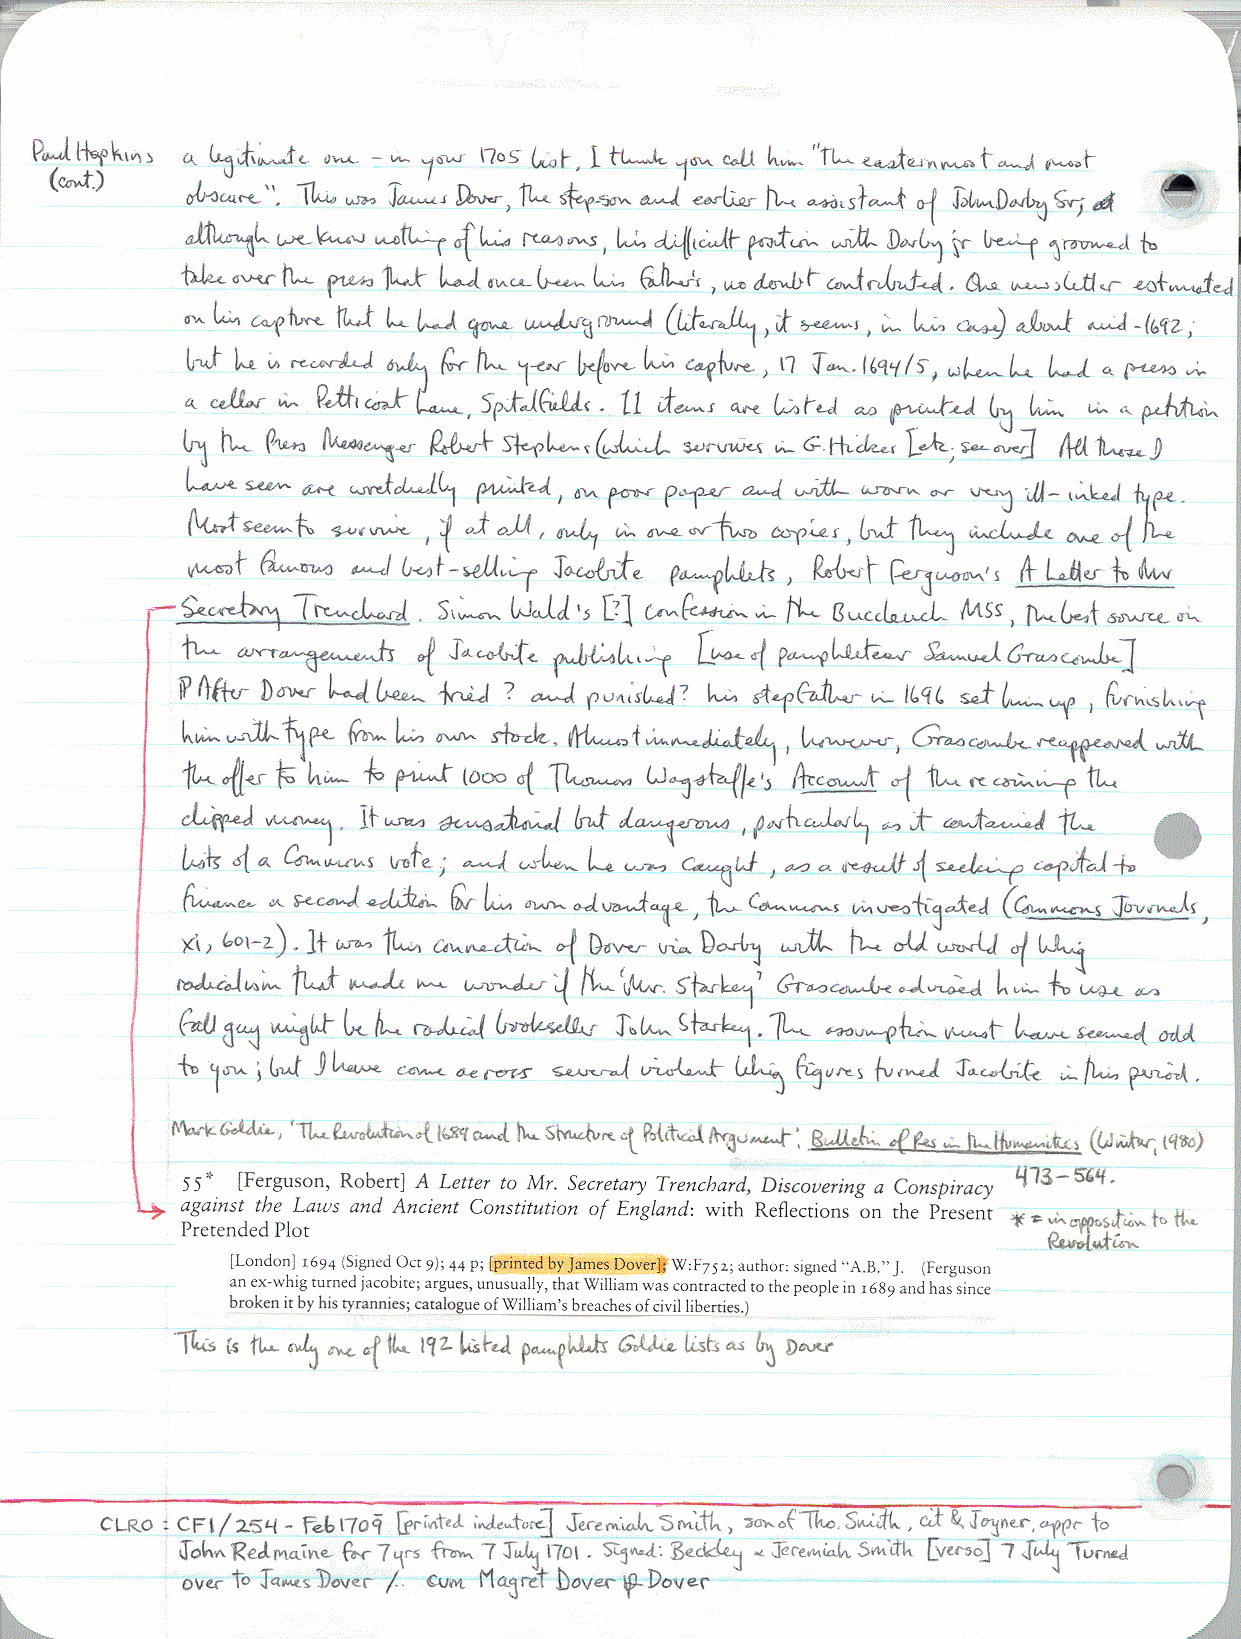 Paul Hopkins (cont.)
a legitimate one – in your 1705 list, I think you call him "The easternmost and most
obscure". This was James Dover, the stepson and earlier the assistant of John Darby Sr;
although we know nothing of his reasons, his difficult position with Darby jr being groomed to
take over the press that had once been his father's, no doubt contributed. One newsletter estimated
on his capture that he had gone underground (literally, it seems, in his case) about mid-1692;
but he is recorded only for the year before his capture, 17 Jan. 1694/5, when he had a press in
a cellar in Petticoat Lane, Spitalfields. 11 items are listed as printed by him in a petition
by the Press Messenger Robert Stephens (which survives in G. Hickes [etc; see over] All those I
have seen are wretchedly printed, on poor paper and with worn or very ill-inked type.
Most seem to survive, if at all, only in one or two copies, but they include one of the
most famous and best-selling Jacobite pamphlets, Robert Ferguson's A Letter to Mr
Secretary Trenchard. Simon Wald's [?] confession in the Buccleuch MSS, the best source on
the arrangements of Jacobite publishing [use of pamphleteer Samuel Grascombe]
¶ After Dover had been tried? and punished? his stepfather in 1696 set him up, furnishing
him with type from his own stock. Almost immediately, however, Grascombe reappeared with
the offer to him to print 1000 of Thomas Wagstaffe's Account of the recoining the
clipped money. It was sensational but dangerous, particularly as it contained the
lists of a Commons vote; and when he was caught, as a result of seeking capital to
finance a second edition for his own advantage, the Commons investigated (Commons Journals,
xi, 601-2). It was this connection of Dover via Darby with the old world of Whig
radicalism that made me wonder if the 'Mr. Starkey' Grascombe advised him to use as
fall guy might be the radical bookseller John Starkey. The assumption must have seemed odd
to you; but I have come across several violent Whig figures turned Jacobite in this period.
Mark Goldie, 'The Revolution of 1689 and the Structure of Political Argument', Bulletin of Res in the Humanities (Winter, 1980)
473–564.
55* [Ferguson, Robert] A Letter to Mr. Secretary Trenchard, Discovering a Conspiracy
against the Laws and Ancient Constitution of England: with Reflections on the Present
Pretended Plot
* = in opposition to the
Revolution
[London] 1694 (Signed Oct 9); 44 p; [printed by James Dover]; W:F752; author: signed "A.B." J. (Ferguson
an ex-whig turned jacobite; argues, unusually, that William was contracted to the people in 1689 and has since
broken it by his tyrannies; catalogue of William's breaches of civil liberties.)
This is the only one of the 192 listed pamphlets Goldie lists as by Dover
CLRO: CF1/254 – Feb 1709 [printed indenture] Jeremiah Smith, son of Tho. Smith, cit & Joyner, appr to
John Redmaine for 7 yrs from 7 July 1701. Signed: Beckley & Jeremiah Smith [verso] 7 July Turned
over to James Dover /. cum Magret Dover Dover